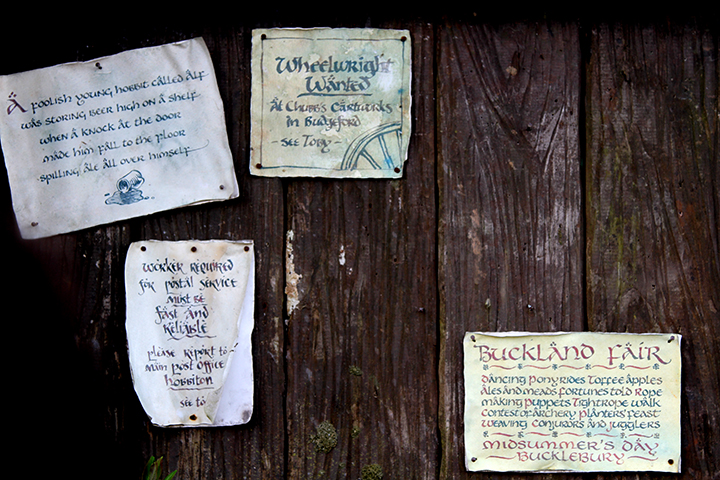 A foolish young hobbit called Alf
was storing beer high on a shelf
when a knock at the door
made him fall to the floor
spilling ale all over himself
Wheelwright
Wanted
At Chubb's Cartworks
in Budgeford
- See Toby -
Worker required
for postal service
must be
fast and
reliable
please report to -
main post office
Hobbiton
see to
Buckland Fair
dancing pony rides toffee apples
ales and meads fortunes told rope
making puppets tightrope walk
contest of archery planters' feast
weaving conjurors and jugglers
Midsummer's Day
Bucklebury